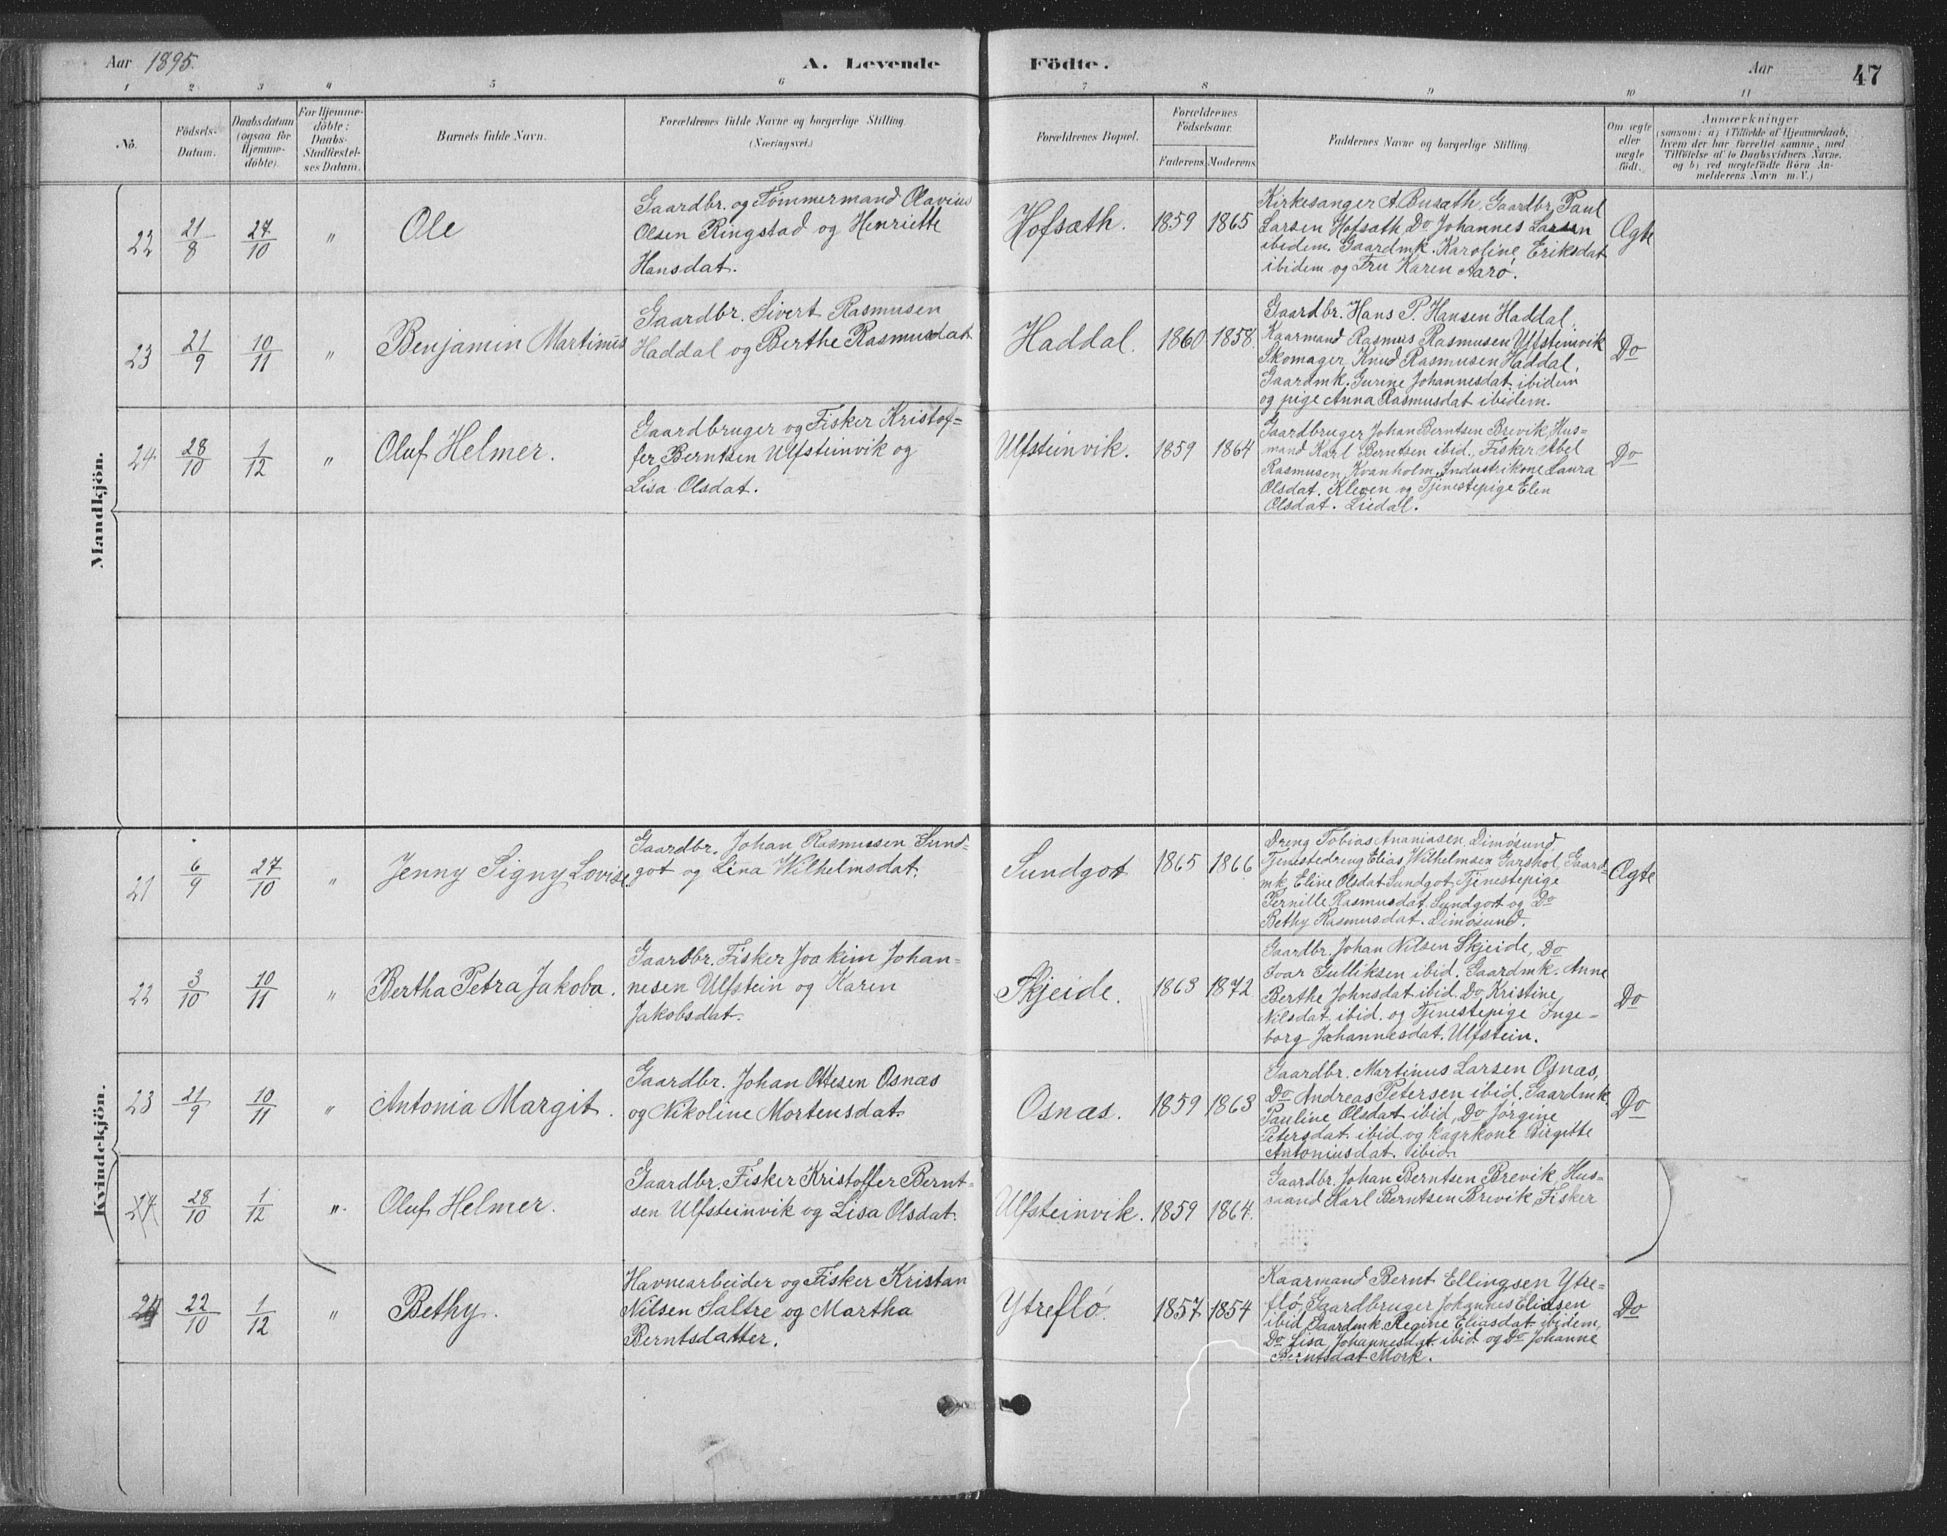 Aar 1895. A. Levende Födte. Aar 47
1 2 3 4 5 6 7 8 9 10 11
No. Födsels-Datum. Daabsdatum (ogsaa for Hjemme-döbte). For Hjemme-döbte: Daabs-Stadfæstel-ses Datum. Barnets fulde Navn. Forældrenes fulde Navne og borgerlige Stilling. (Næringsvei.) Forældrenes Bopæl. Forældrenes Födselsaar. Faderens Moderens Faddernes Navne og borgerlige Stilling. Om ægte eller uægte födt. Anmærkninger (saasom: a) i Tilfælde af Hjemmedaab, hvem der har forrettet samme, med Tilföielse af to Daabsvidners Navne, og b) ved uægtefödte Börn An-melderens Navn m. V.)
Mandkjön.
22 21/8 27/10 " Ole
Gaardbr. og Tømmermand Olavius
Olsen Ringstad og Henriette
Hansdat.
Hofsæth. 1859 1865
Kirkesanger A. Busæth. Gaardbr. Paul
Larsen Hofsæth Do Johannes Larsen
ibidem. Gaardmk. Karoline Eriksdat
ibidem og Fru Karen Aarø.
Ægte
23 21/9 10/11 " Benjamin Martinus
Gaardbr. Sivert Rasmusen
Haddal og Berthe Rasmusdat
Haddal. 1860 1858.
Gaardbr. Hans P. Hansen Haddal.
Kaarmand Rasmus Rasmusen Ulfsteinvik
Skomager Knud Rasmusen Haddal.
Gaardmk. Gurine Johannesdat ibidem
og pige Anna Rasmusdat ibidem.
Do
24 28/10 1/12 " Oluf Helmer.
Gaardbruger og Fisker Kristof-
fer Berntsen Ulfsteinvik og
Lisa Olsdat.
Ulfsteinvik. 1859 1864
Gaardbruger Johan Berntsen Brevik Hus-
mand Karl Berntsen ibid., Fisker Abel
Rasmusen Kvanholm, Industrikone Laura
Olsdat. Kleven og Tjenestepige Elen
Olsdat. Liedal.
Do
Kvindekjön.
21 6/9 27/10 " Jenny Signy Lovise
Gaardbr. Johan Rasmusen Sund-
got og Lina Wilhelmsdat.
Sundgot 1865 1866
Dreng Tobias Ananiasen Dimøsund
Tjenestedreng Elias Wilhelmsen Garshol, Gaard-
mk. Eline Olsdat Sundgot Tjenestepige
Pernille Rasmusdat Sundgot og Do
Bethy Rasmusdat. Dimøsund.
Ægte
22 3/10 10/11 " Bertha Petra Jakoba.
Gaardbr. Fisker Joakim Johan-
nesen Ulfstein og Karen
Jakobsdat.
Skjeide. 1863 1872
Gaardbr. Johan Nilsen Skjeide, Do
Ivar Gulliksen ibid. Gaardmk. Anne
Berthe Johnsdat ibid. Do Kristine
Nilsdat ibid. og Tjenestepige Inge-
borg Johannesdat. Ulfstein.
Do
23 21/9 10/11 " Antonia Margit.
Gaardbr. Johan Ottesen Osnæs
og Nikoline Mortensdat.
Osnæs. 1859 1863
Gaardbr. Martinus Larsen Osnæs,
Do Andreas Petersen ibid. Gaardmk.
Pauline Olsdat ibid, Do Jørgine
Petersdat ibid og Kaarkone Birgitte
Antoniusdat. ibid.
Do
24 28/10 1/12 " Oluf Helmer.
Gaardbr. Fisker Kristoffer Bernt-
sen Ulfsteinvik og Lisa Olsdat.
Ulfsteinvik. 1859 1864.
Gaardbr. Johan Berntsen Brevik, Hus-
mand Karl Berntsen Brevik Fisker
24 22/10 1/12 " Bethy.
Havnearbeider og Fisker Kristan
Nilsen Saltre og Martha
Berntsdatter.
Ytreflö. 1857 1854
Kaarmand Bernt Ellingsen Ytre-
flö, Gaardbruger Johannes Eliasen
ibid, Gaardmk Regine Eliasdat ibidem,
Do Lisa Johannesdat ibid og Do Johanne
Berntsdat Mork.
Do